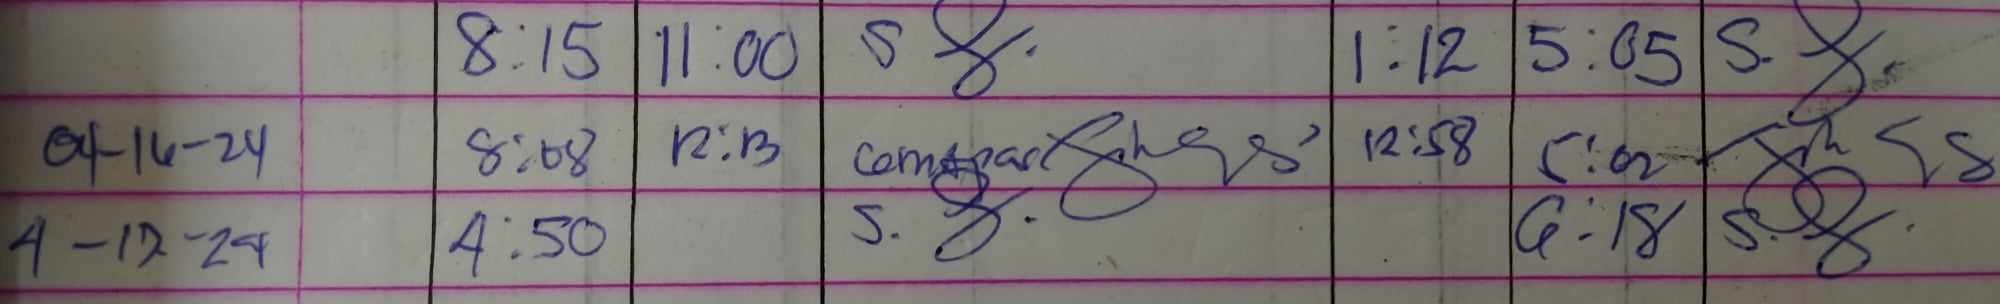 8:15 11:00 S 1:12 5:05 S.
04-16-24 8:08 12:13 12:58 5:02
4-17-24 4:50 S. 6:18 S.